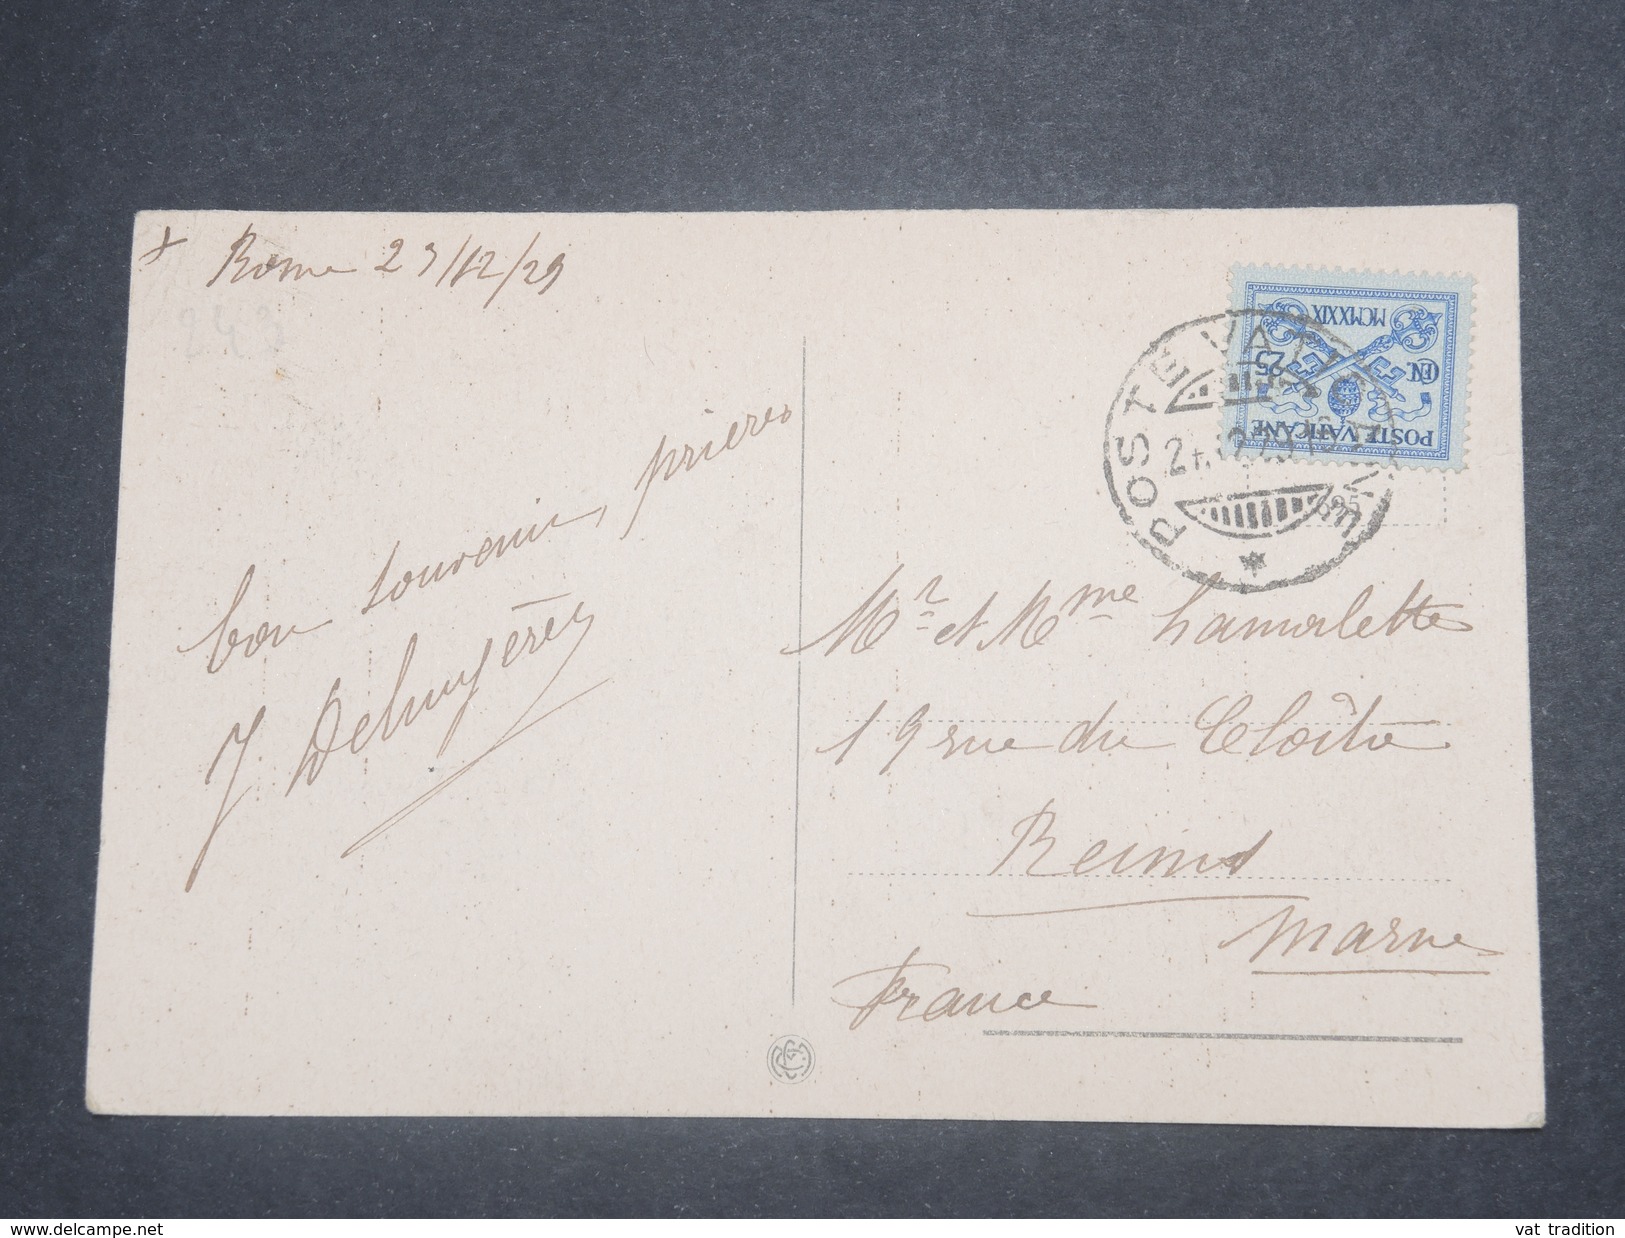 Rome 23/12/29
243
bon souvenir, prieres
J. Deluyèrez
POSTE VATICANE
MCMXXIX
CEN 25
POSTE VATICANE
695
Mr et Mme Lamalette
19 rue du Cloître
Reims
Marne
France
www.delcampe.net
vat tradition